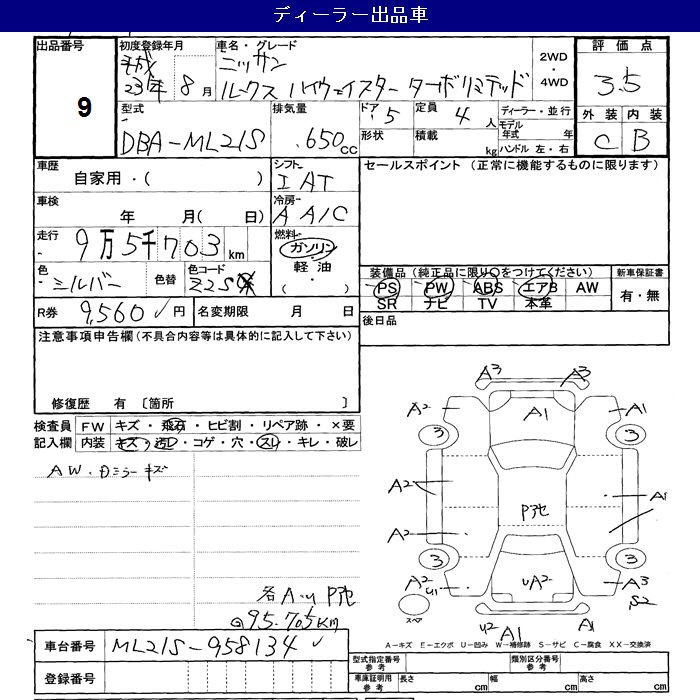 ディーラー出品車
出品番号 9
初度登録年月 平成 23年 8月
車名・グレード ニッサン
ルークス ハイウェイスター ターボリミテッド
2WD・4WD
評価点 3.5
外装 C 内装 B
型式 DBA-ML21S
排気量 .650cc
ドア 5 形状
定員 4人 積載 kg
ディーラー・並行
モデル年式 年
ハンドル 左・右
車歴 自家用・( )
シフト IAT
セールスポイント (正常に機能するものに限ります)
車検 年 月( 日)
冷房 A A/C
走行 9万5千703km
燃料 ガソリン・軽油・( )
色 シルバー 色替
色コード Z2S
装備品 (純正品に限り○をつけてください) 新車保証書
PS PW ABS エアB AW 有・無
SR ナビ TV 本革
R券 9,560円 名変期限 月 日
後日品
注意事項申告欄 (不具合内容等は具体的に記入して下さい)
修復歴 有 〔箇所 〕
検査員 FW キズ・飛石・ヒビ割・リペア跡・×要
記入欄 内装 キズ・汚レ・コゲ・穴・スレ・キレ・破レ
AW・Dミラーキズ
A3 A3
A2 A1 A1
3 3
A2 A1
A2 P池
3 3
A2 U1 UA2 A3 S2
スペア
U2 A1 A1
各A・U P池
@95.705KM
A－キズ E－エクボ U－凹み W－補修跡 S－サビ C－腐食 XX－交換済
車台番号 ML21S-958134
登録番号
型式指定番号 参考 類別区分番号 参考
車庫証明用 参考 長さ cm 幅 cm 高さ cm